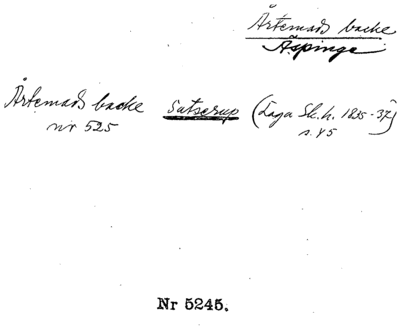 Årtemads backe
Äspinge
Årtemads backe Satserup (Laga Sk.h. 1835-37)
nr 525 s. 45
Nr 5245.